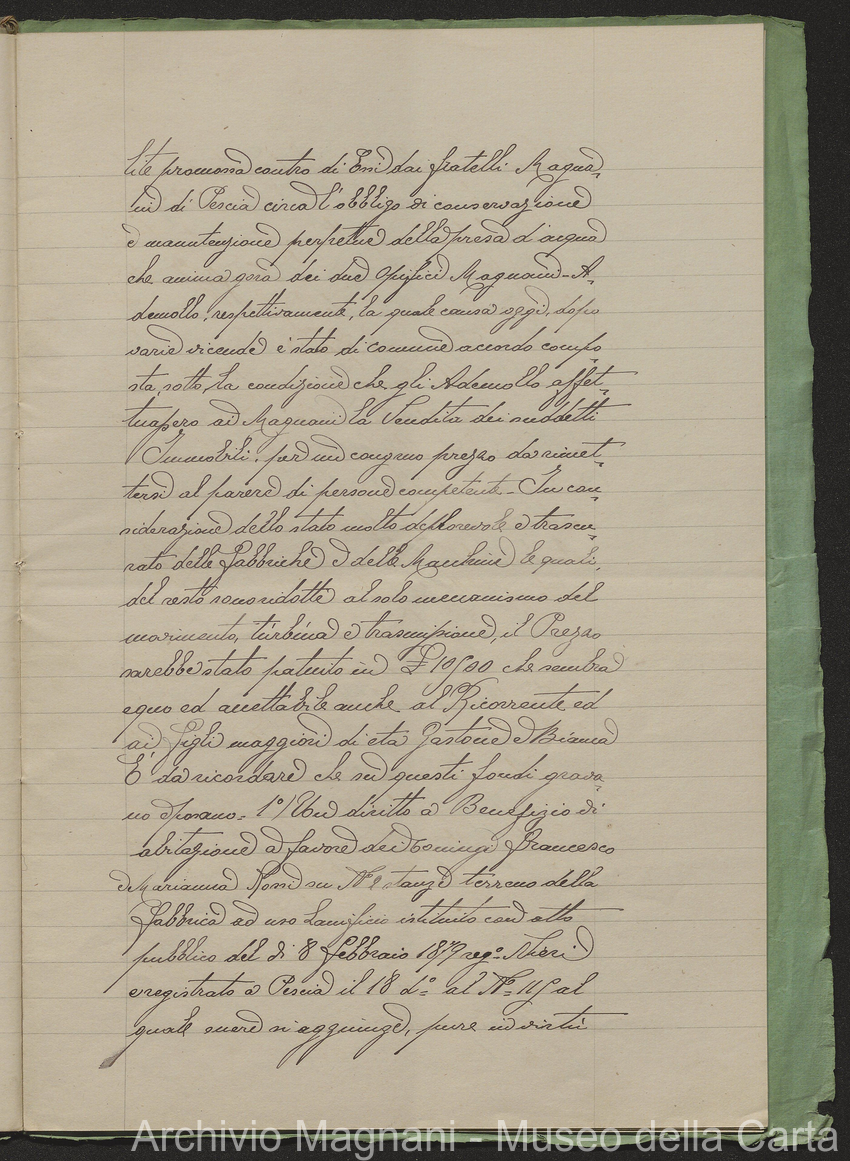 lite promossa contro di Essi dai fratelli Magna=
ni di Pescia circa l'obbligo di conservazione
e manutenzione perpetue della presa d'acqua
che anima gora dei due Opifici Magnani-A=
demollo, respettivamente, la quale causa oggi, dopo
varie vicende è stato di comune accordo compo=
sta, sotto la condizione che gli Ademollo effet=
tuassero ai Magnani la Vendita dei suddetti
Immobili. per un congruo prezzo da rimet=
tersi al parere di persone competente - In con=
siderazione dello stato molto deplorevole e trascu=
rato delle Fabbriche e delle Macchine le quali,
del resto sono ridotte al solo meccanismo del
movimento, turbina e trasmissione, il Prezzo
sarebbe stato patuito in £ 10500 che sembra
equo ed accettabile anche al Ricorrente ed
ai figli maggiori di eta Gastone e Bianca
E' da ricordare che su questi fondi grava=
no e posano = 1°/ Un diritto a Benefizio di
abitazione a favore dei coniugi Francesco
e Marianna Rossi su N° 2 stanze terreno della
Fabbrica ad uso Lanificio istituito con atto
pubblico del di 8 Febbraio 1879 rog° Nieri
e registrato a Pescia il 18 d° al N° 115 al
quale onere si aggiunge, pure in virtù
Archivio Magnani - Museo della Carta